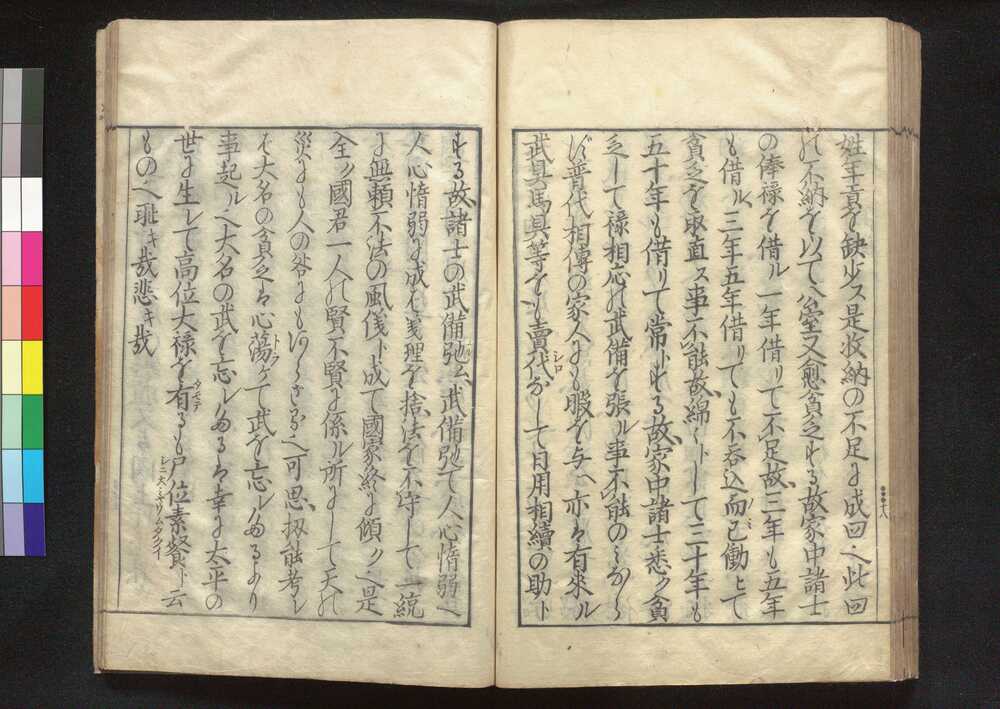 姓年貢を缺少ス是收納の不足に成回ヘ此回
の不納を以て公室又愈貧乏する故家中諸士
の俸禄を借ル一年借りて不足故三年も五年
も借ル三年五年借りても不呑込而已働ヒて
貧乏を取直ス事不能故綿〻トして三十年も
五十年も借りて常トする故家中諸士悉ク貧
乏して禄相応の武備を張ル事不能のミならず
普代相傳の家人にも暇を与ヘ亦ハ有来ル
武具馬具等をも賣代なして日用相續の助ト
する故諸士の武備弛ム武備弛て人心惰弱ヘ
人心惰弱に成ルと義理を捨法を不守して一統
に無頼不法の風儀ト成て國家終に傾ク是
全ク國君一人の賢不賢に係ル所にして天の
災にも人の咎にもあらさる也可思扨能考レ
は大名の貧乏は心蕩ケて武を忘レたるより
事起ル也大名の武を忘レたるは幸に太平の
世に生レて高位大禄を有るも尸位素餐ト云
もの也耻キ哉悲キ哉